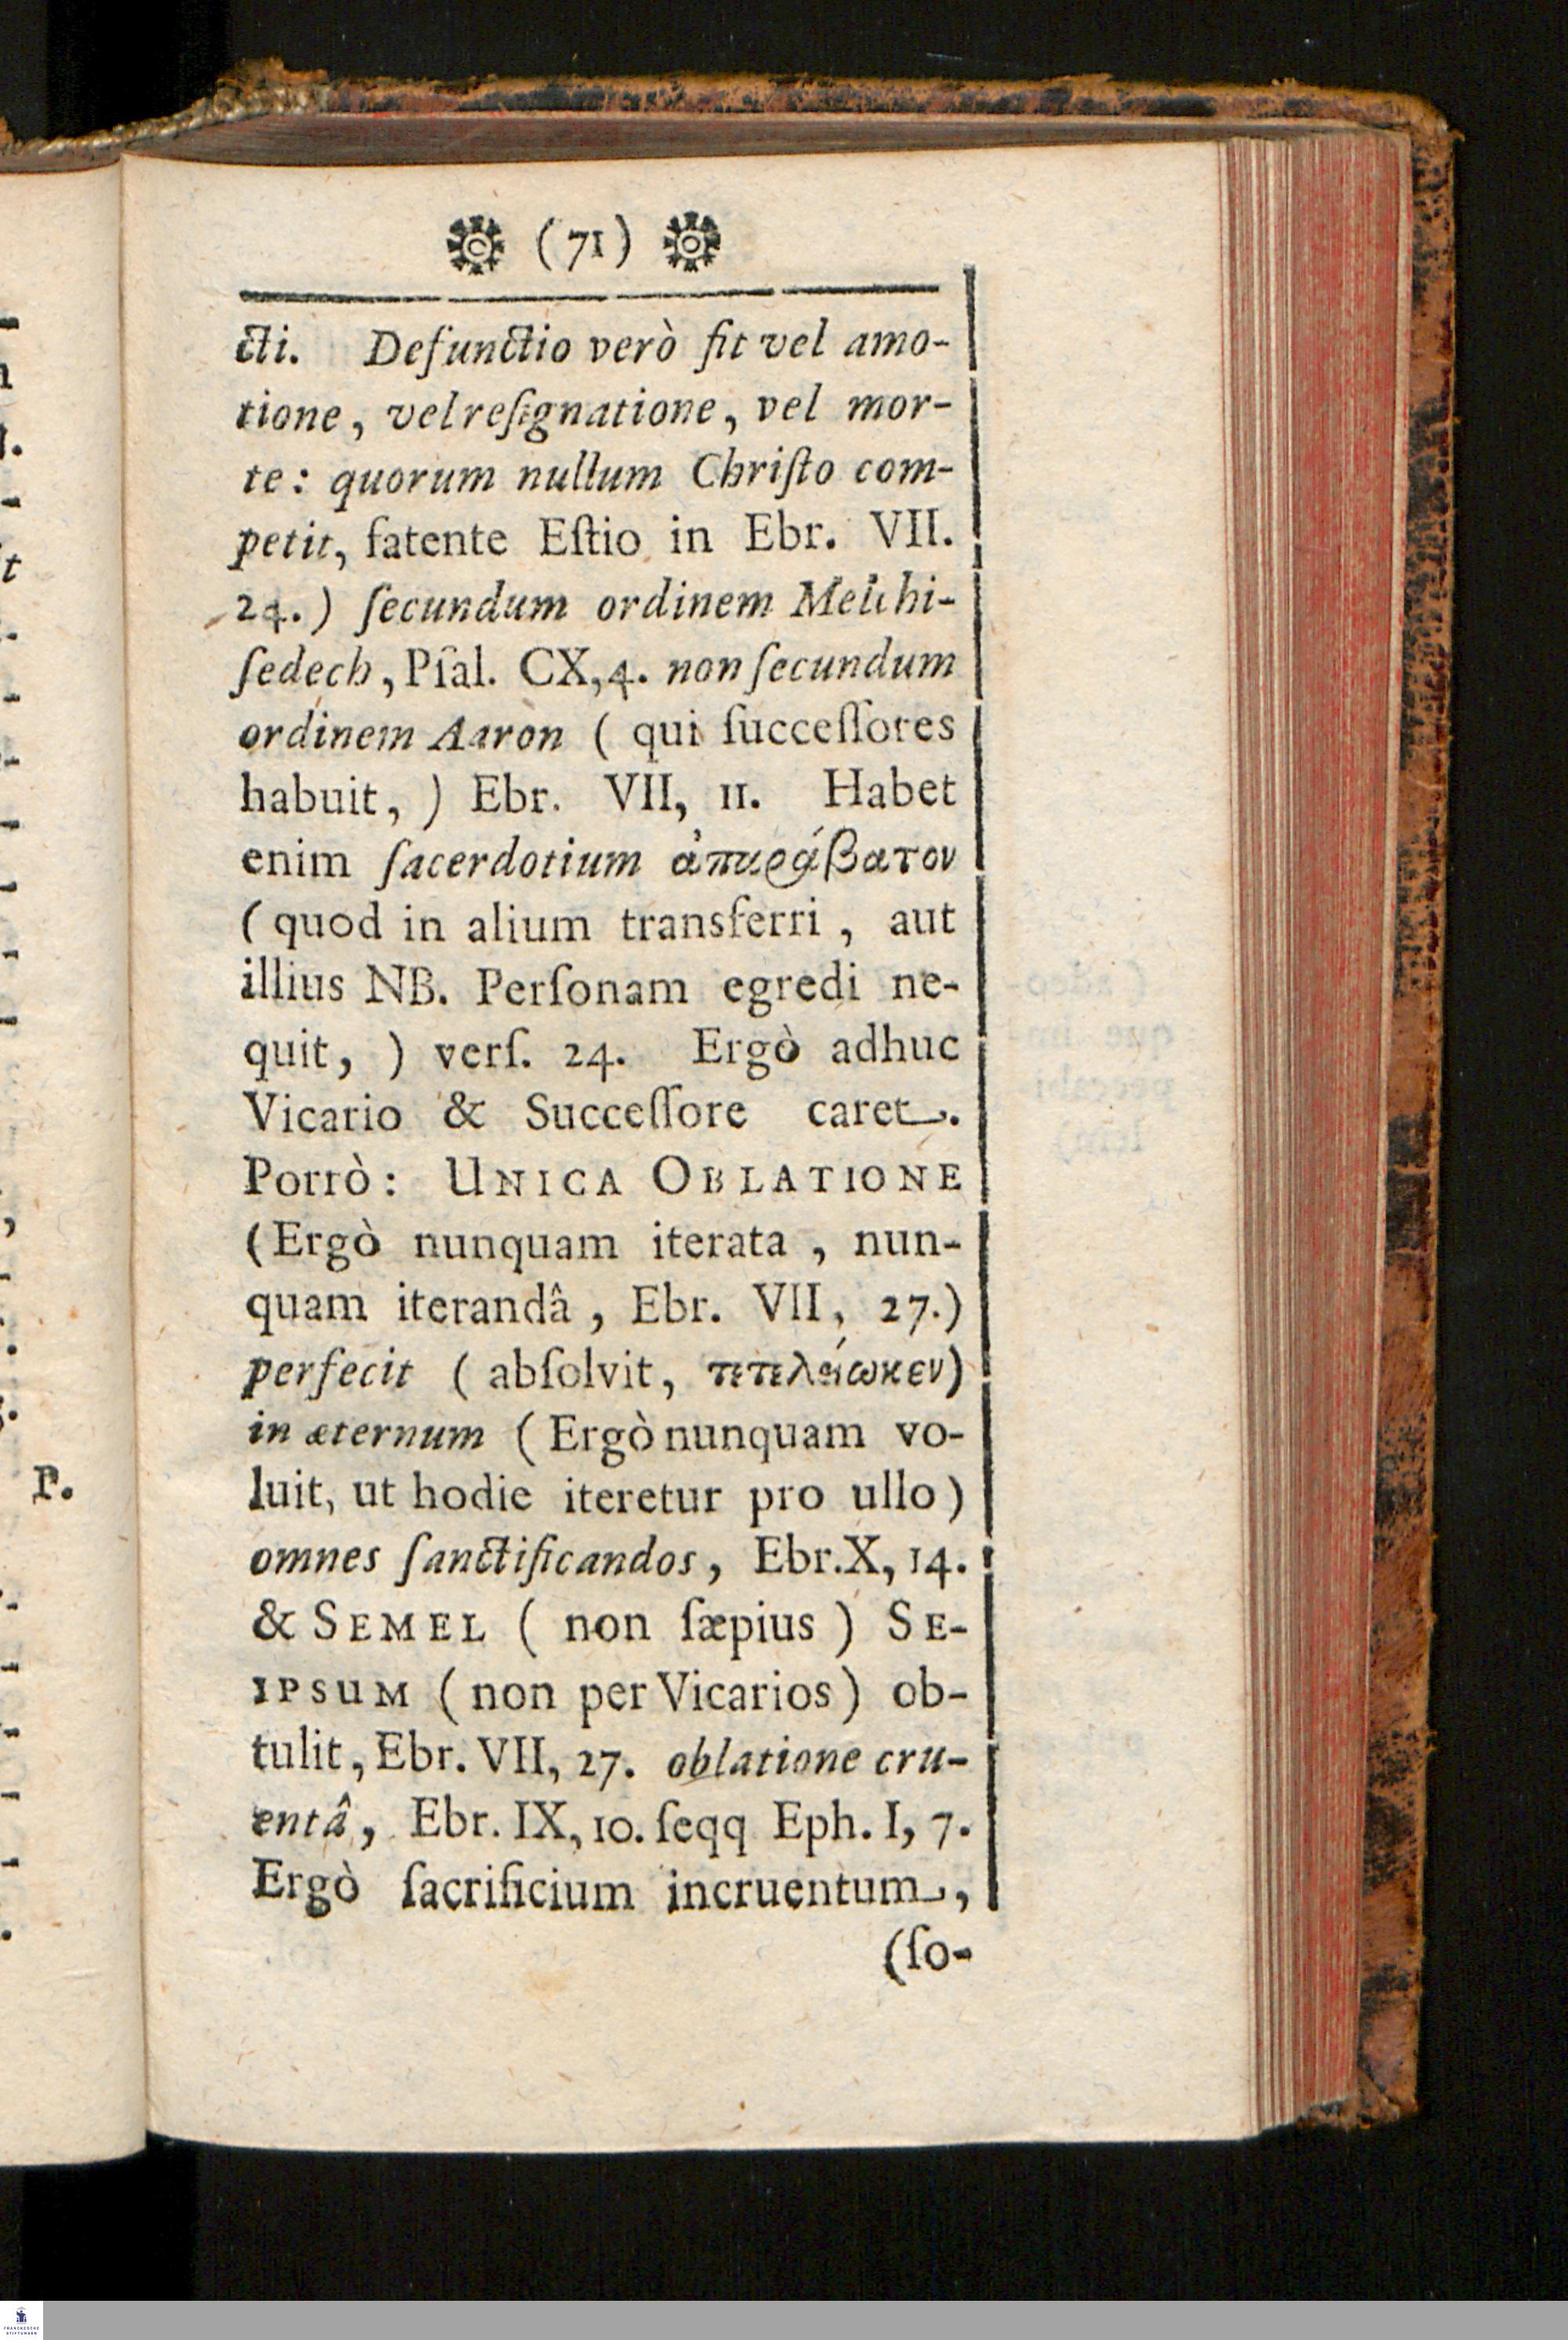 (71)
cti. Defunctio verò fit vel amo-
tione, vel reſignatione, vel mor-
te: quorum nullum Chriſto com-
petit, fatente Eſtio in Ebr. VII.
24.) ſecundum ordinem Melchi-
ſedech, Pſal. CX,4. non ſecundum
ordinem Aaron ( qui ſucceſſores
habuit, ) Ebr. VII, 11. Habet
enim ſacerdotium ἀπαράβατον
( quod in alium transferri, aut
illius NB. Perſonam egredi ne-
quit, ) verſ. 24. Ergò adhuc
Vicario & Succeſſore caret.
Porrò: UNICA OBLATIONE
(Ergò nunquam iterata, nun-
quam iterandâ, Ebr. VII, 27.)
perfecit ( abſolvit, τετελείωκεν)
in æternum ( Ergò nunquam vo-
luit, ut hodie iteretur pro ullo)
omnes ſanctificandos, Ebr.X, 14.
& SEMEL ( non ſæpius ) SE-
IPSUM ( non per Vicarios) ob-
tulit, Ebr. VII, 27. oblatione cru-
entâ, Ebr. IX, 10. ſeqq Eph. I, 7.
Ergò ſacrificium incruentum,
(ſo-
P.
FRANCKESCHE
STIFTUNGEN